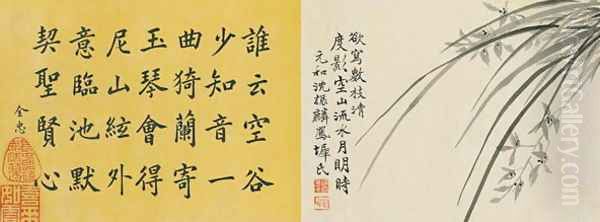 誰云空谷
少知音一
曲猗蘭寄
玉琴會得
尼山絃外
意臨池默
契聖賢心
全忠
欲寫數枝清
度影空山流水月明時
元和沈振麟鳳墀氏
alamy